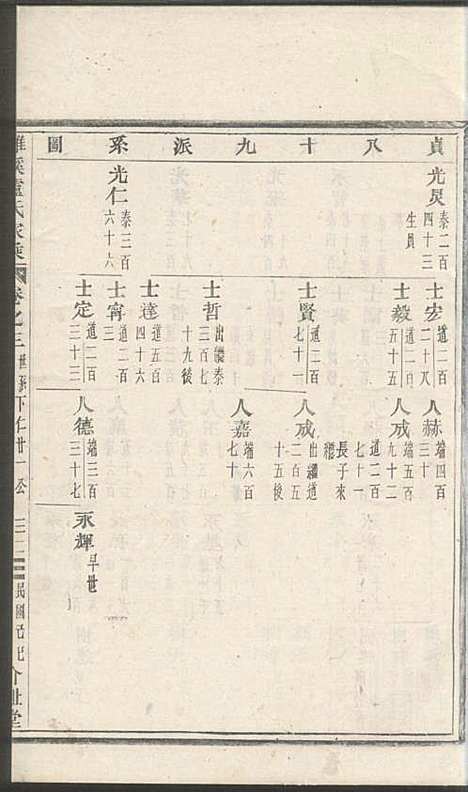 貞八十九派系圖
光炅 泰二百四十三 生員
光仁 泰三百六十六
士宏 道二百二十八
士毅 道二百五十五
士賢 道二百七十一
士哲 出繼泰三百七十九後
士達 道五百四十六
士甯 道二百三
士定 道二百三十三
人赫 端四百三十
人戒 端五百九十二
道二百七十一長子來繼
人戒 出繼道二百五十五後
人嘉 端六百七十
人德 端三百三十七
永輝 早世
溪盧氏家乘 卷之三 世系 下仁廿一公 民國 世堂